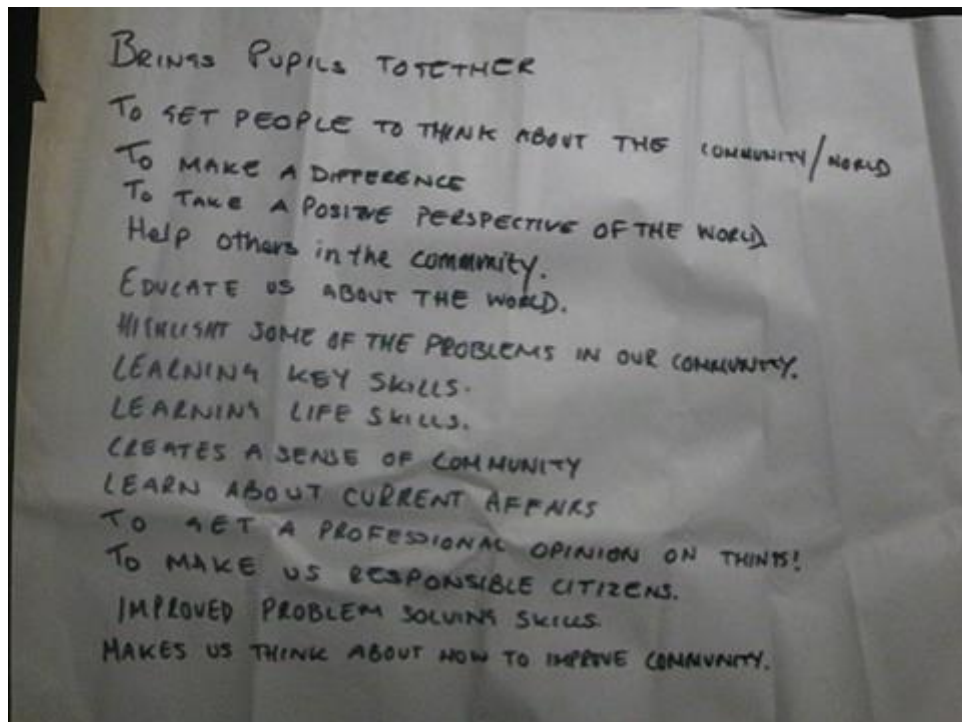 BRINGS PUPILS TOGETHER
TO GET PEOPLE TO THINK ABOUT THE COMMUNITY/WORLD
TO MAKE A DIFFERENCE
TO TAKE A POSITIVE PERSPECTIVE OF THE WORLD
Help others in the community.
EDUCATE US ABOUT THE WORLD.
HIGHLIGHT SOME OF THE PROBLEMS IN OUR COMMUNITY.
LEARNING KEY SKILLS.
LEARNING LIFE SKILLS.
CREATES A SENSE OF COMMUNITY
LEARN ABOUT CURRENT AFFAIRS
TO GET A PROFESSIONAL OPINION ON THINGS!
TO MAKE US RESPONSIBLE CITIZENS.
IMPROVED PROBLEM SOLVING SKILLS.
MAKES US THINK ABOUT HOW TO IMPROVE COMMUNITY.